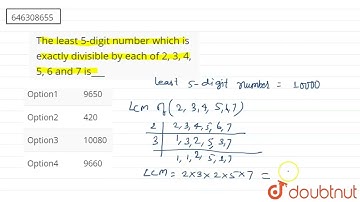 646308655
The least 5-digit number which is
exactly divisible by each of 2, 3, 4,
5, 6 and 7 is__
Option1 9650
Option2 420
Option3 10080
Option4 9660
least 5-digit number = 10000
LCM of (2, 3, 4, 5, 6, 7)
2 2, 3, 4, 5, 6, 7
3 1, 3, 2, 5, 3, 7
1, 1, 2, 5, 1, 7
LCM = 2×3×2×5×7 =
doubtnut